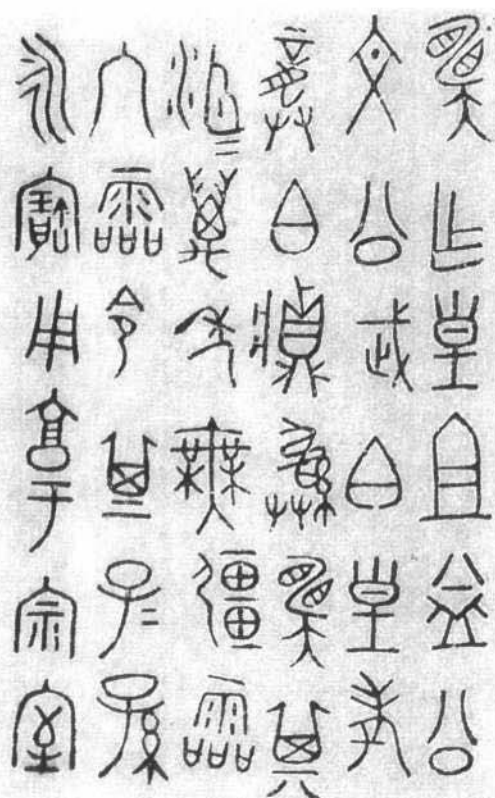 乍皇且益公
文公武白皇考
龔白䵼彝其
洍=萬年無疆霝
冬霝令其子=孫
永寶用享于宗室